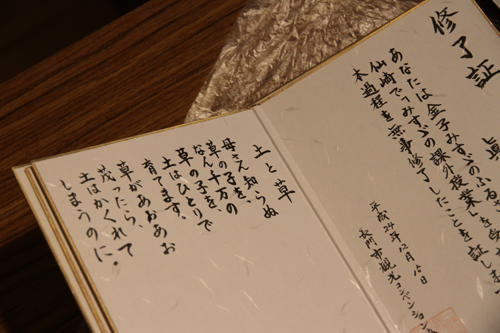 修了証
あなたは金子みすゞのふるさと
仙崎でみすゞの課外授業を受け
本過程を無事修了したことを証しま
平成24年12月18日
長門市観光コンベンション
土と草
母さん知らぬ
草の子を、
なん千万の
草の子を、
土はひとりで
育てます。
草があおあお
茂ったら、
土はかくれて
しまうのに。